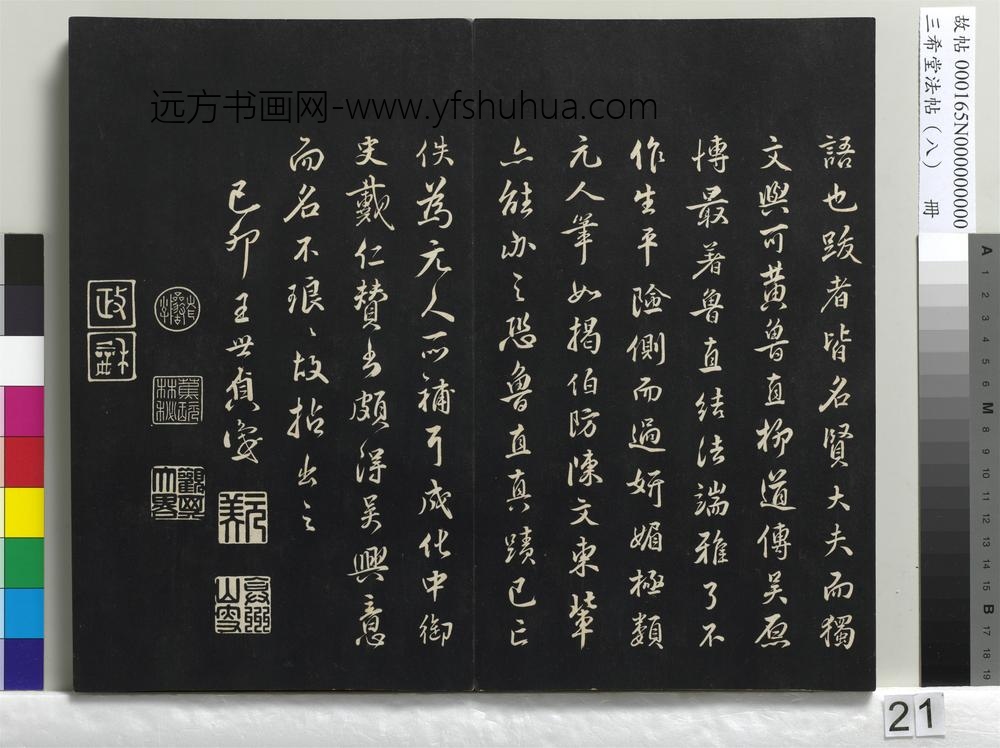 語也跋者皆名賢大夫而獨
文與可黃魯直柳道傳吳原
博最著魯直結法端雅了不
作生平險側而過妍媚極類
元人筆如揭伯防陳文東輩
亦能辦之恐魯直真蹟已亡
佚為元人所補耳成化中御
史戴仁贊書頗得吳興意
而名不琅〻故拈出之
己卯王世貞識
远方书画网-www.yfshuhua.com
故帖 000165N000000000
三希堂法帖（八） 冊
21
A 1 2 3 4 5 6 M 8 9 10 11 12 13 14 15 B 17 18 19